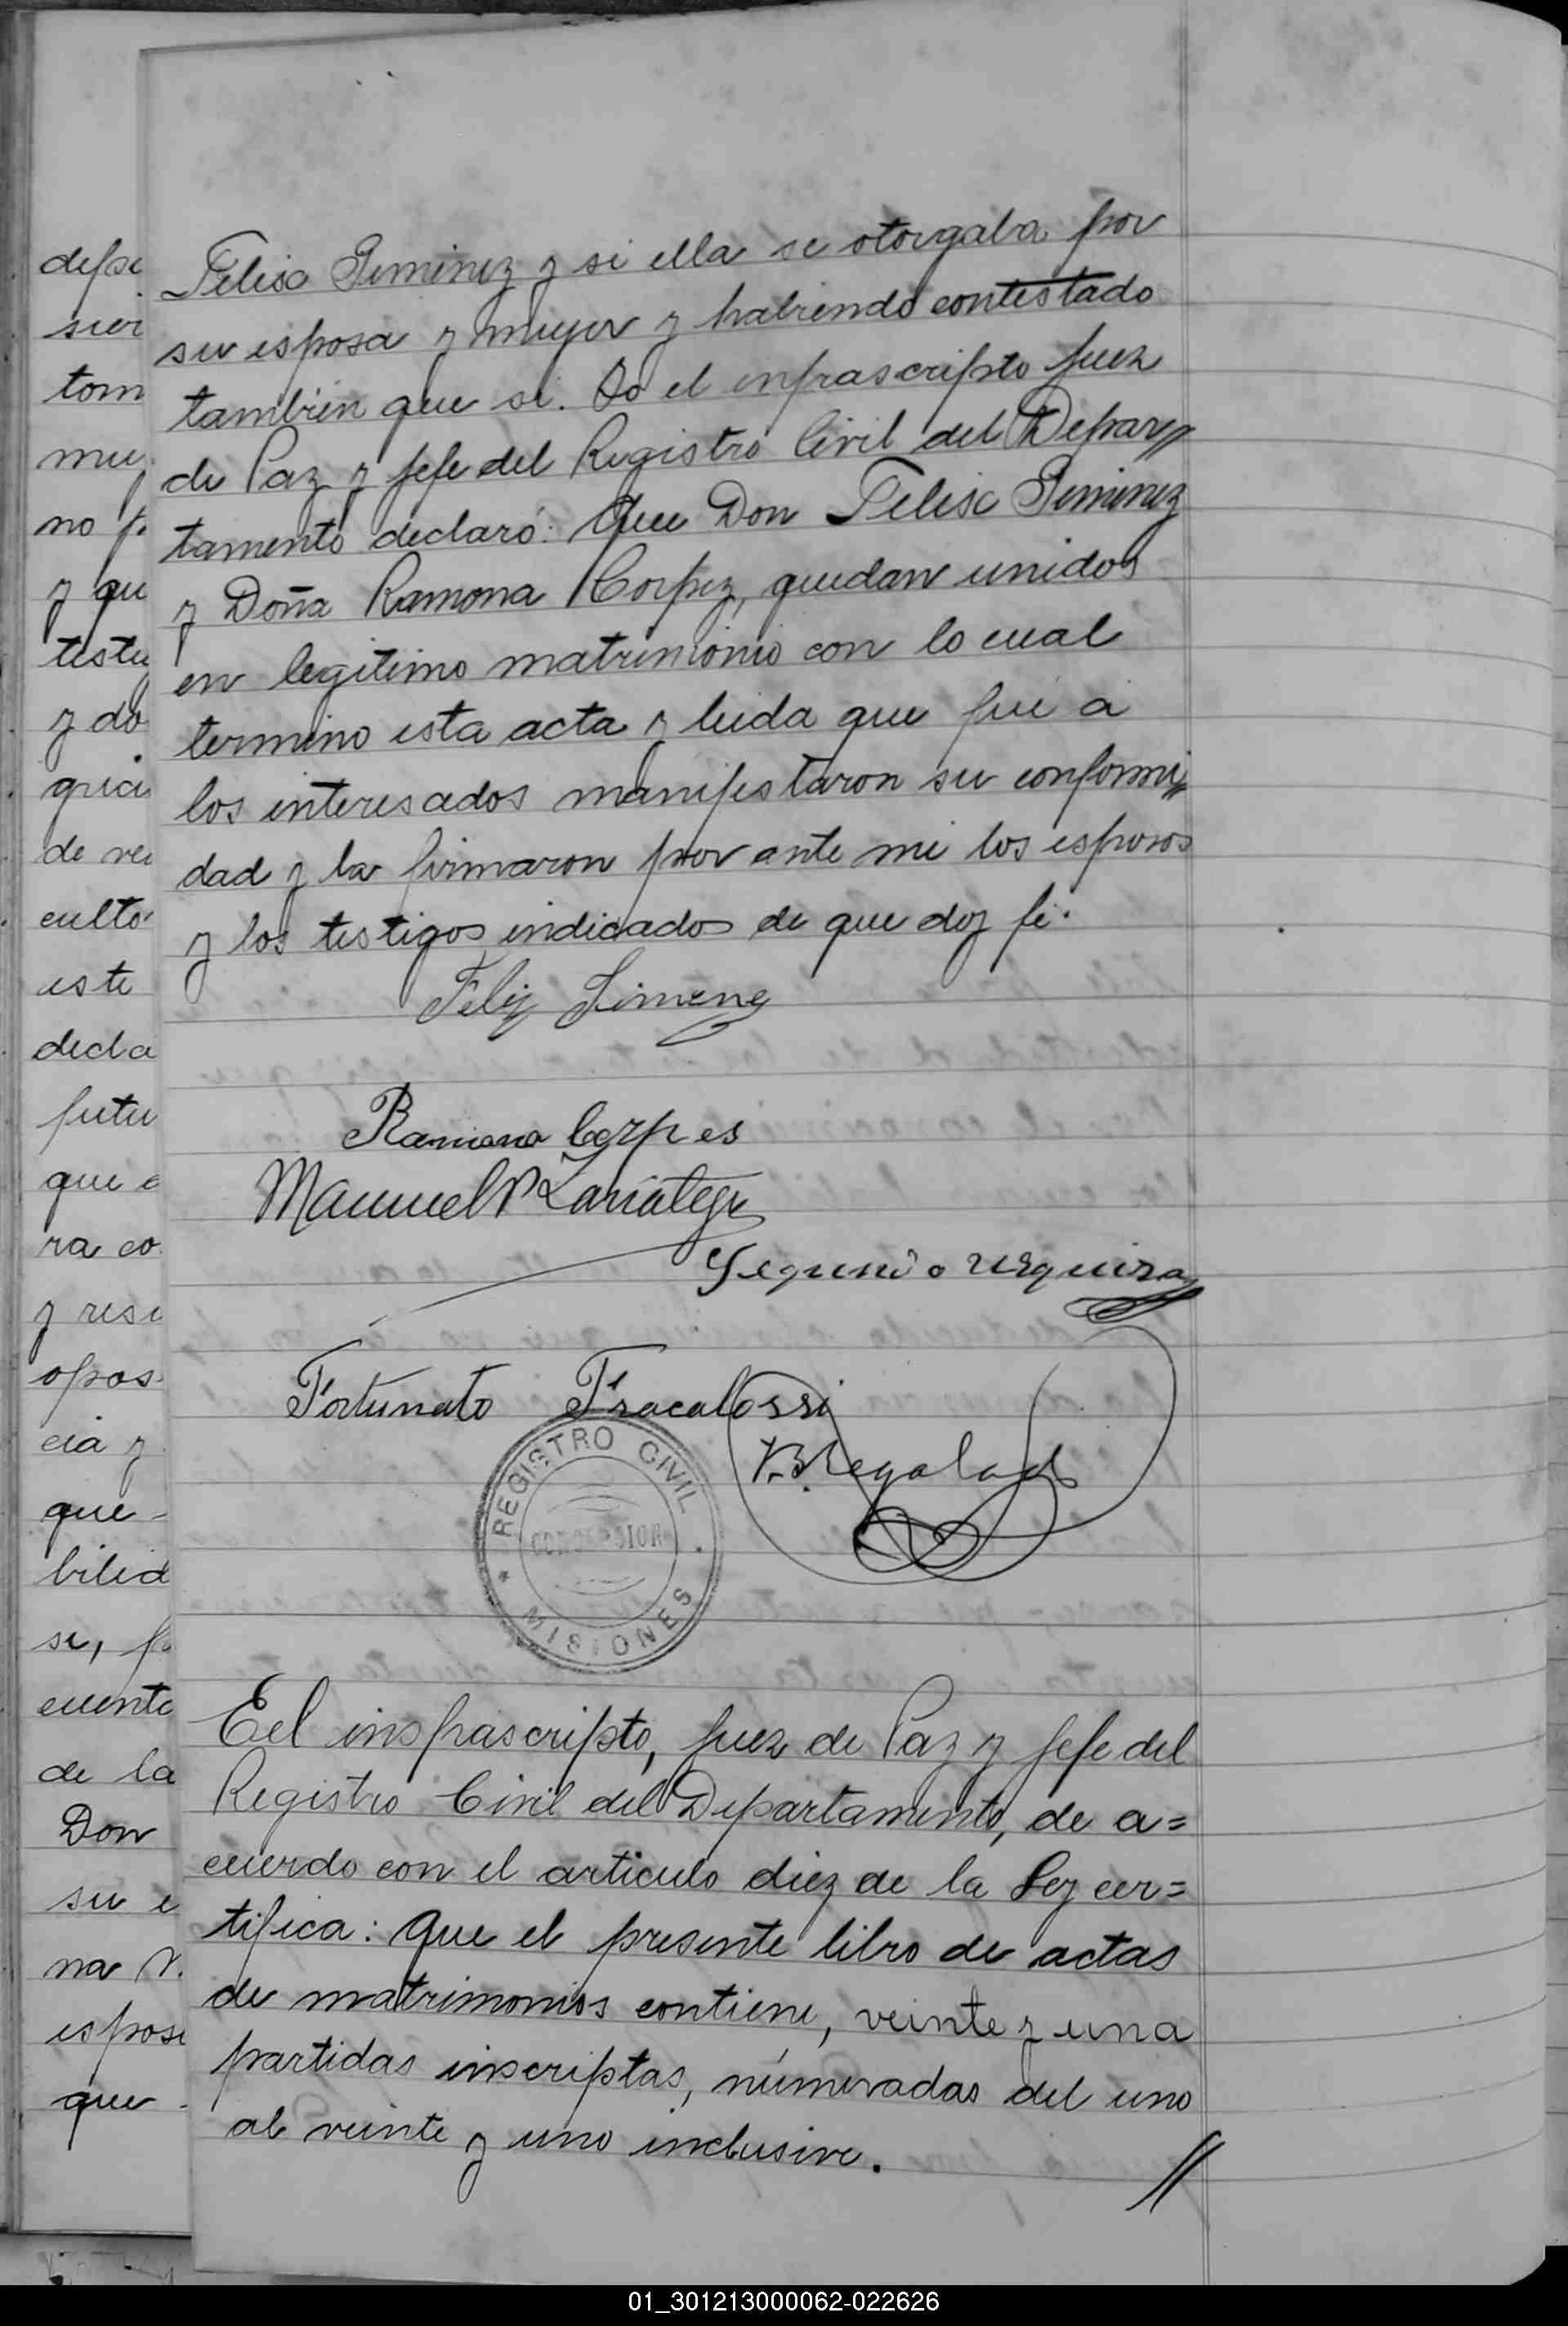 depo
sier
tom
mu
no p
y qu
testig
y do
guar
de ve
culto
este
decla
futu
que e
ra co
y resi
opos
cia y
que -
bilid
se, p
cuente
de la
Don
su e
na V.
espos
que -
Felix Jiminez y si ella se otorgaba por
su esposa y mujer y habiendo contestado
tambien que si. Yo el infrascripto Juez
de Paz y Jefe del Registro Civil del Depar//
tamento declaró: Que Don Felix Jiminez
y Doña Ramona Corpez, quedan unidos
en legitimo matrimonio con lo cual
termino esta acta y leida que fué á
los interesados manifestaron su conformi//
dad y la firmaron por ante mi los esposos
y los testigos indicados de que doy fé.
Feliz Jimenez
Ramona Corpes
Manuel P Lariategu
Segundo Urquiza
Fortunato Fracalossi
Regalad
REGISTRO CIVIL
CONCEPSION
MISIONES
Eel insfrascripto, Juez de Paz y Jefe del
Registro Civil del Departamento, de a=
cuerdo con el articulo diez de la Ley cer=
tifica: Que el presente libro de actas
de matrimonios contiene, veinte y una
partidas inscriptas, númeradas del uno
al veinte y uno inclusive. //
01_301213000062-022626